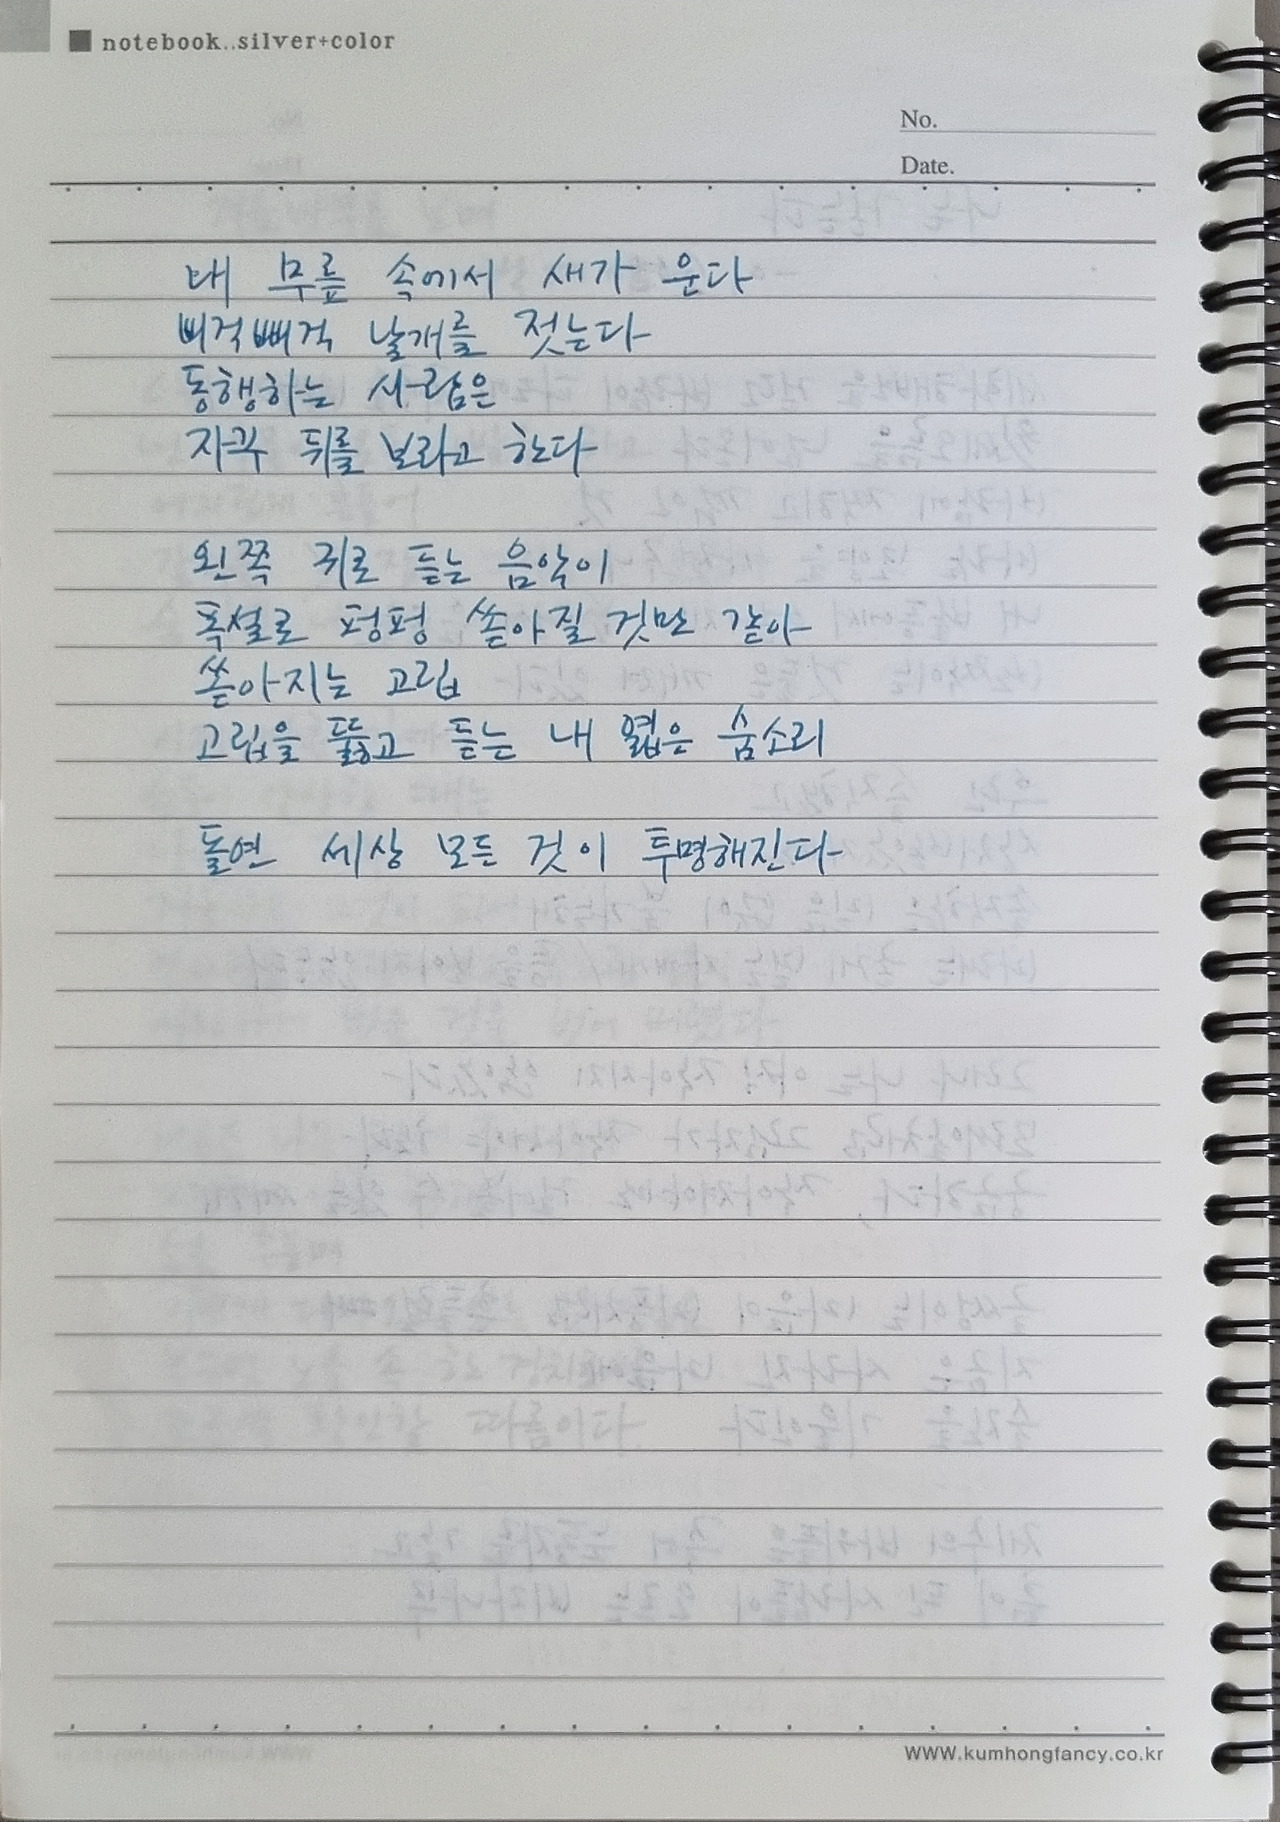 notebook..silver+color
No.
Date.
내 무릎 속에서 새가 운다
삐걱삐걱 날개를 젓는다
동행하는 사람은
자꾸 뒤를 보라고 한다
왼쪽 귀로 듣는 음악이
폭설로 펑펑 쏟아질 것만 같아
쏟아지는 고립
고립을 뚫고 듣는 내 엷은 숨소리
돌연 세상 모든 것이 투명해진다
www.kumhongfancy.co.kr